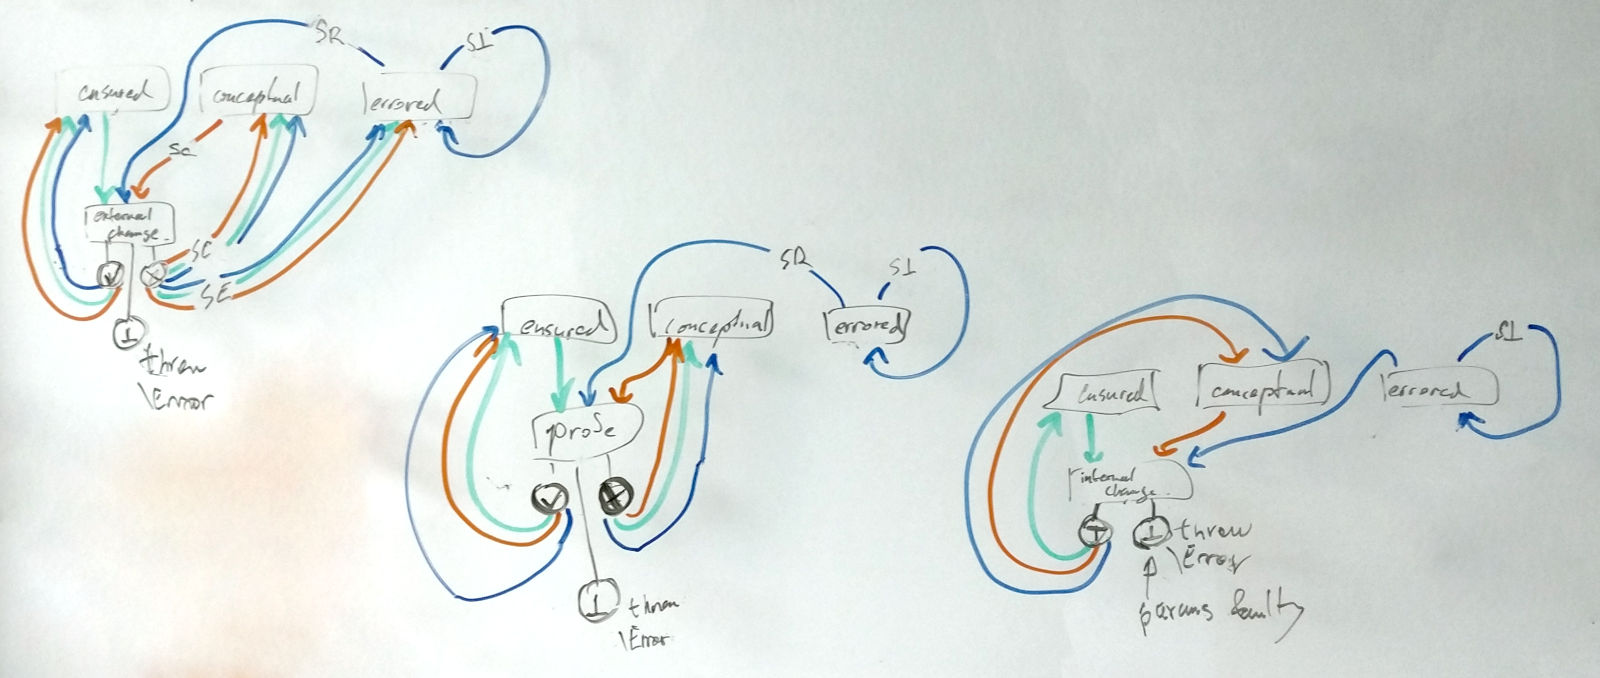 SR
SI
ensured
conceptual
errored
SC
external
change
SC
SE
I
throw
\Error
SR
SI
ensured
conceptual
errored
probe
I
throw
\Error
SI
ensured
conceptual
errored
internal
change
T
I
throw
\Error
params faulty